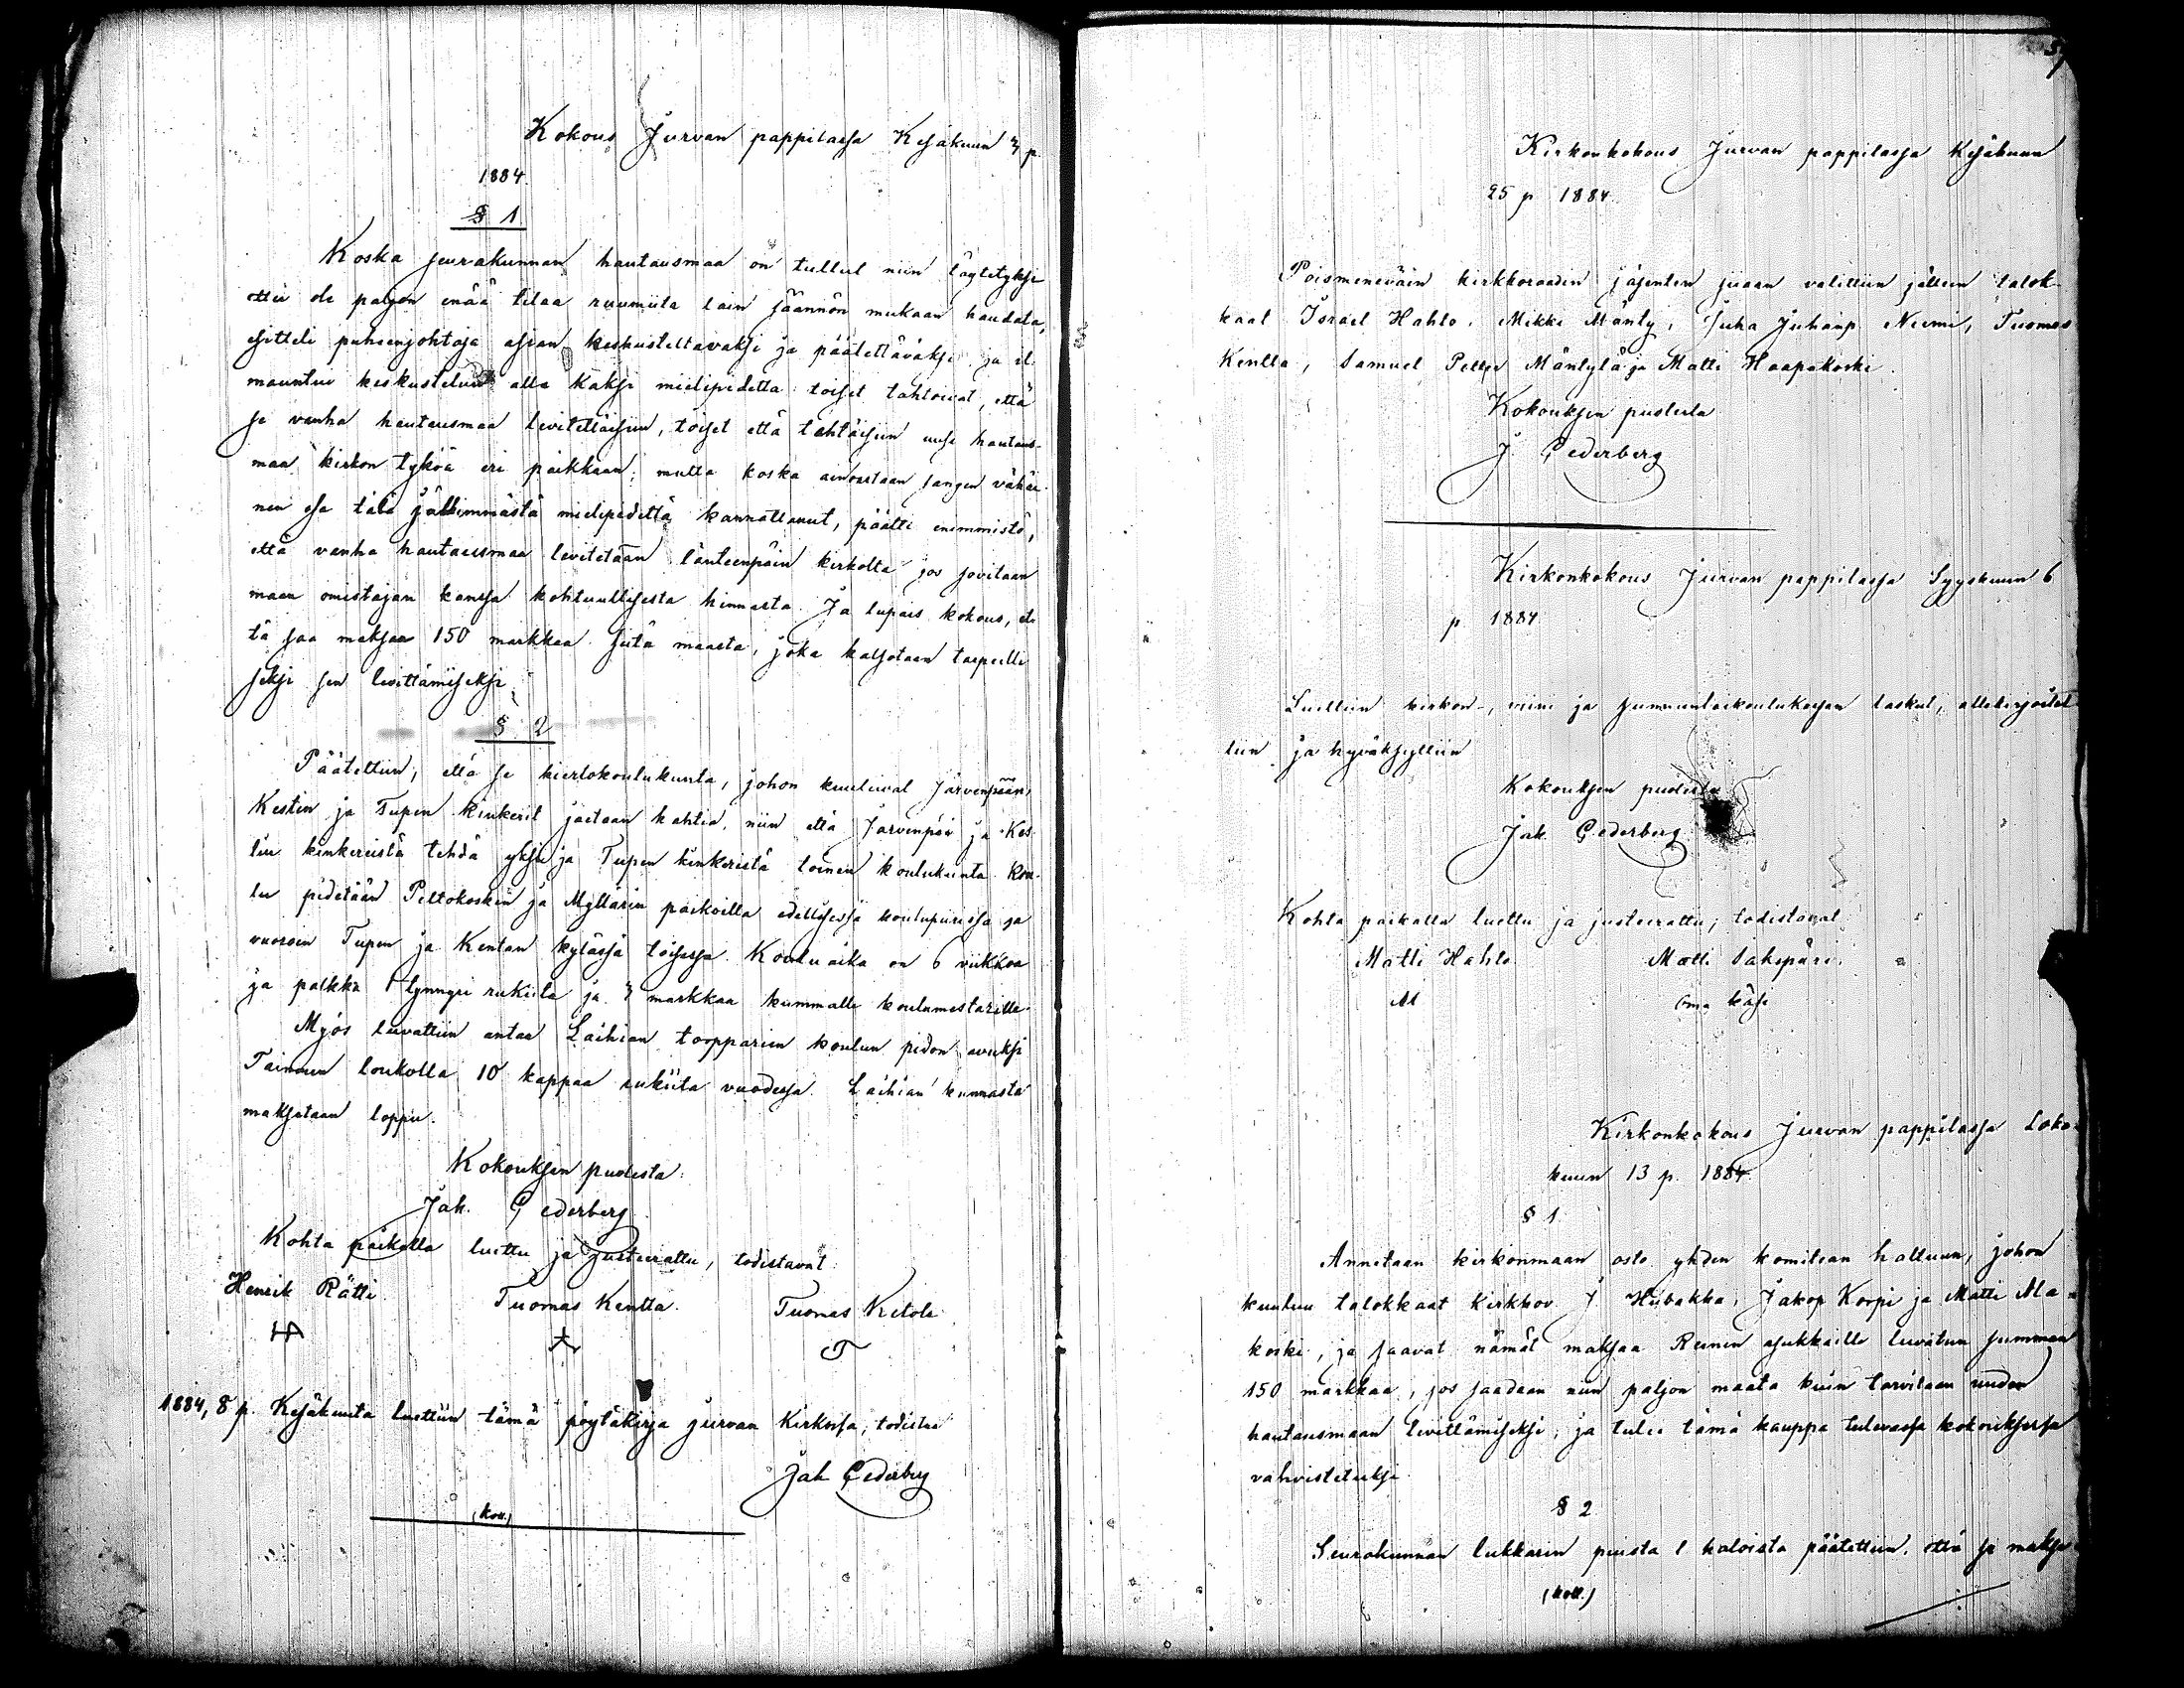 Kokous Jurvan pappilassa Kesäkuun 3 p.
1884.
§ 1.
Koska seurakunnan hautausmaa on tullut niin täytetyksi
ettei ole paljon enää tilaa ruumiita lain säännön mukaan haudata,
esitteli puheenjohtaja asian keskusteltavaksi ja päätettäväksi ja il-
mauntui keskustelun alla kaksi mielipidettä: toiset tahtoivat, että
se vanha hautausmaa levitettäisiin, toiset että tehtäisiin uusi hautaus-
maa kirkon tyköä eri paikkaan; mutta koska ainoastaan sangen vähäi-
nen osa tätä jälkimmäistä mielipidettä kannattanut, päätti enimmistö,
että vanha hautausmaa levitetään länteenpäin kirkolta jos sovitaan
maan omistajan kanssa kohtuullisesta hinnasta. Ja lupais kokous, et-
tä saa maksaa 150 markkaa siitä maasta, joka katsotaan tarpeelli
seksi sen levittämiseksi.
§ 2
Päätettiin, että se kiertokoulukunta, johon kuuluvat Järvenpään,
Kestin ja Tupen kinkerit jaetaan kahtia, niin että Järvenpää ja Kes-
tin kinkeristä tehdä yksi ja Tupen kinkeristä toinen koulukunta. Kou-
lu pidetään Peltokosken ja Myllärin paikoilla edellisessä koulupiirissä ja
vuoroin Tupen ja Kentan kylässä toisessa. Kouluaika on 6 viikkoa
ja palkka 1 tynnyri rukiita ja 3 markkaa kummalle koulumestarille.
Myös luvattiin antaa Laihian torpparien koulun pidon avuksi
Tainuun loukolla 10 kappaa rukiita vuodessa. Laihian kunnasta
maksetaan loppu.
Kokouksen puolesta:
Jak. Cederberg
Kohta paikalla luettu ja justeerattu, todistavat:
Henrik Rätti. Tuomas Kentta. Tuomas Ketola
HA T
1884, 8 p. Kesäkuuta luettiin tämä pöytäkirja Jurvan Kirkossa, todistaa
Jak Cederberg
(koll.)
Kirkonkokous Jurvan pappilassa Kesäkuun
25 p 1884.
Poismeneväin kirkkoraadin jäsenten sijaan valittiin jälleen talok-
kaat Israel Hahto, Mikki Mänty, Juha Juhanp. Niemi, Tuomas
Kentta, Samuel Mäntylä ja Matti Haapakoski.
Kokouksen puolesta
J. Cederberg
Kirkonkokous Jurvan pappilassa Syyskuun 6
p 1884.
Luettiin kirkon-, viini ja sunnuntaikoulukassan laskut, allekirjoitet
tiin ja hyväksyttiin
Kokouksen puolesta
Jak. Cederberg
Kohta paikalla luettu ja justeerattu; todistavat:
Matti Hahto. Matti Sakspäri.
M oma käsi
Kirkonkokous Jurvan pappilassa Loka-
kuun 13 p. 1884.
§ 1.
Annetaan kirkonmaan osto yhden komitean haltuun, johon
kuuluu talokkaat Kirkkov. J Hubakka, Jakop Korpi ja Matti Ma-
koski, ja saavat nämät maksaa Reinin asukkaille luvatun summan
150 markkaa, jos saadaan niin paljon maata kuin tarvitaan uuden
hautausmaan levittämiseksi; ja tulee tämä kauppa tulevassa kokouksessa
vahvistetuksi.
§ 2.
Seurakunnan lukkarin puista l haloista päätettiin, että se maksa
(koll.)